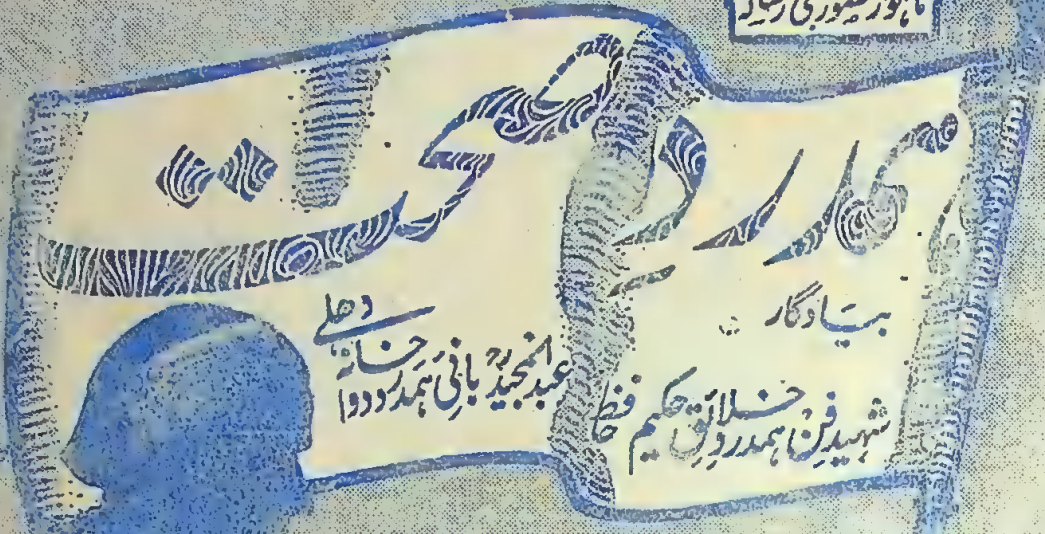 ماہوار مصوری رسالہ
ہمدرد صحت
بیادگار
شہید فن ہمدرد خلائق حکیم حافظ
عبدالمجید بانی ہمدرد دواخانہ
دھلی